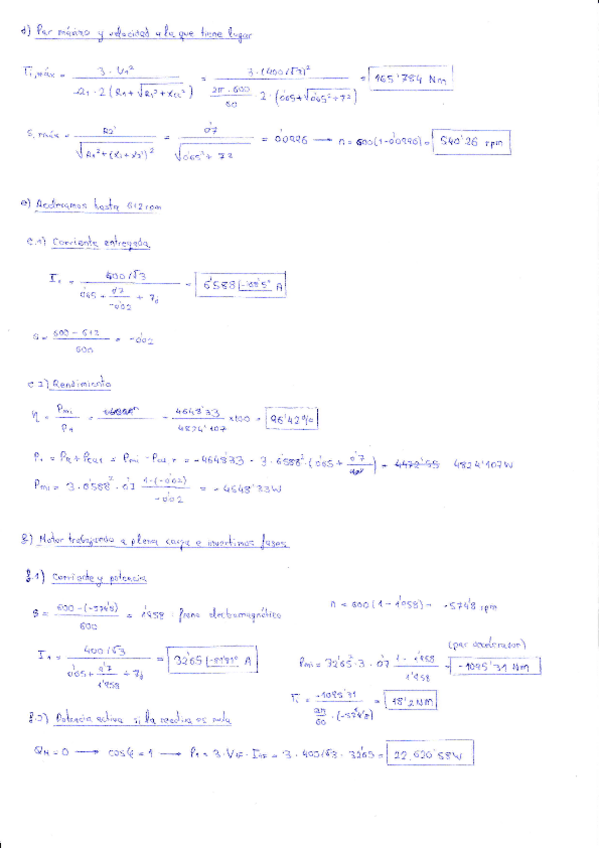 d) Par máximo y velocidad a la que tiene lugar
Ti,máx = 3·V1² / Ω1·2(R1+√R1²+Xcc²) = 3·(400/√3)² / 2π·600/60 · 2·(0'65+√0'65²+7²) = 165'784 Nm
s,máx = R2' / √R1²+(X1+X2')² = 0'7 / √0'65²+7² = 0'0996 → n=600(1-0'0996)= 540'26 rpm
e) Aceleramos hasta 612 rpm
e.1) Corriente entregada
I1 = 400/√3 / 0'65 + 0'7/-0'02 + 7j = 6'588 A
s = 600-612 / 600 = -0'02
e.2) Rendimiento
η = Pmi / P1 = 4648'33 / 4824'107 ×100 = 96'42%
4824'107W
Pmi = 3·6'588²·0'7 1-(-0'02) / -0'02 = -4648'33W
f) Motor trabajando a plena carga e invertimos fases
f.1) Corriente y potencia
s = 600-(-574'8) / 600 = 1'958 : freno electromagnético
n = 600(1-1'958) = -574'8 rpm
I1 = 400/√3 / 0'65 + 0'7/1'958 + 7j = 32'65 A
(par acelerador)
Pmi = 32'65²·3·0'7 1-1'958 / 1'958 = -1095'31 Nm
Ti = -1095'31 / 2π/60·(-574'8) = 18'2 Nm
f.2) Potencia activa si la reactiva es nula
QM = 0 → cosφ = 1 → P1 = 3·V1F·I1F = 3·400/√3·32'65 = 22.620'58W